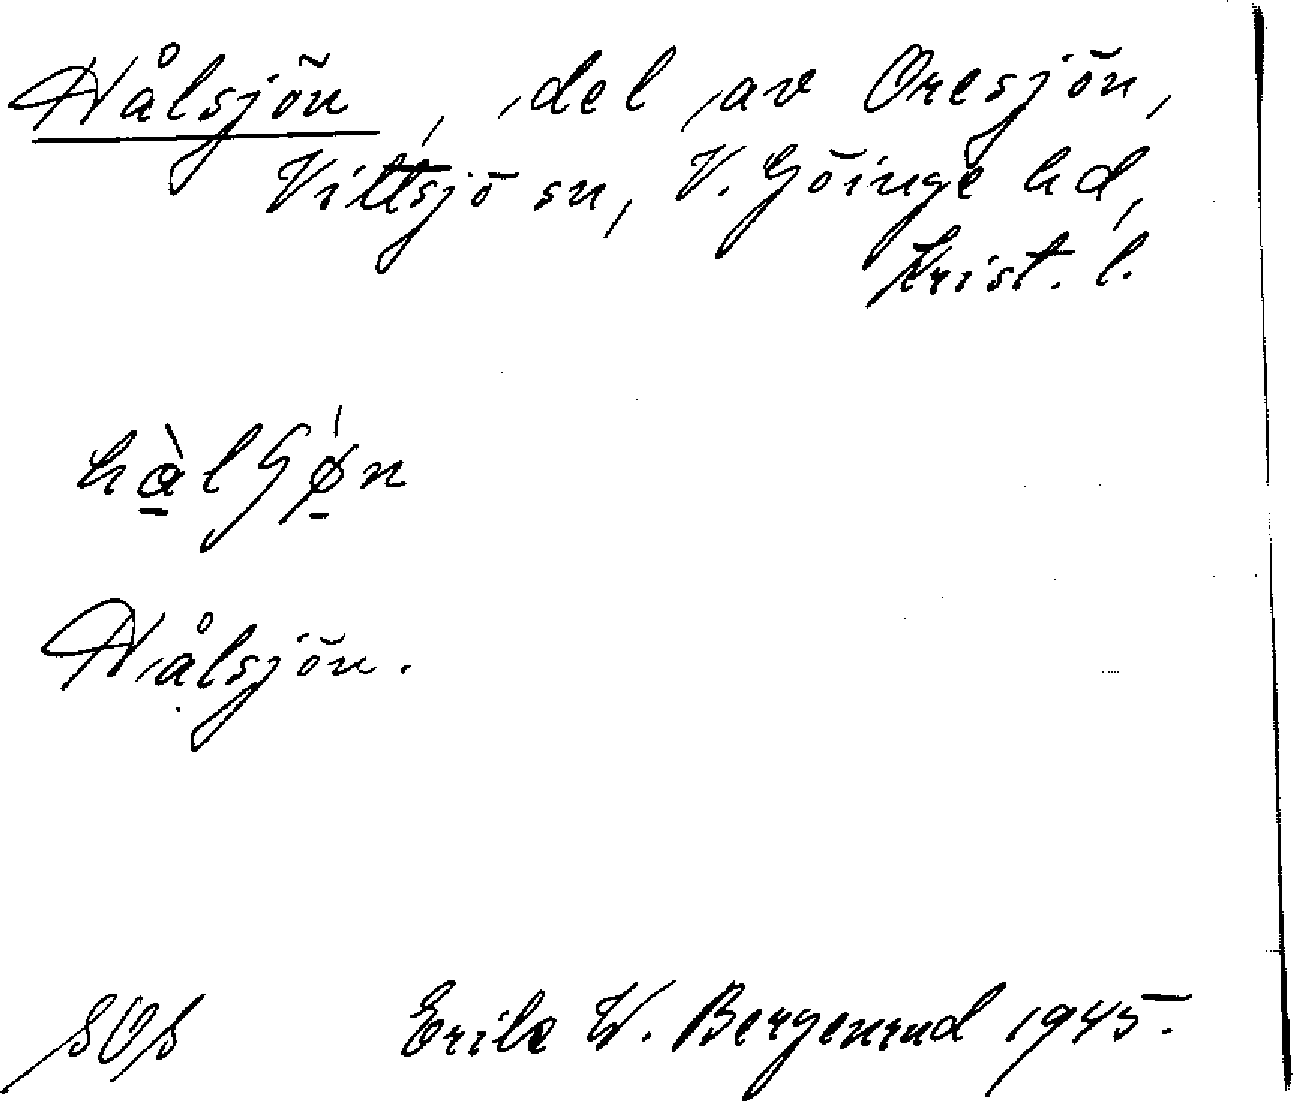 Hålsjön, del av Oresjön,
Vittsjö sn, V. Göinge hd,
Krist. l.
hàlʃǿn
Hålsjön.
SOS Erik W. Bergenrud 1945.